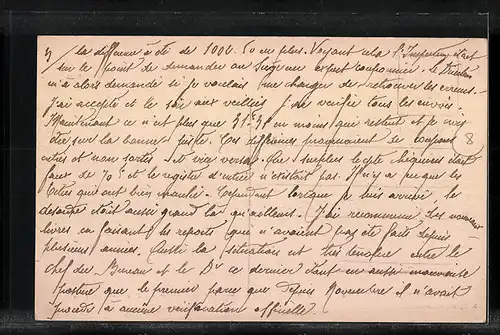 3/ la différence a été de 1000. 50 en plus. Voyant cela l'Inspecteur était
sur le point de demander au Siège un expert comptable. Le Directeur
m'a alors demandé si je voulais me charger de retrouver les erreurs.
J'ai accepté et le soir aux veillées j'ai vérifié tous les mois.
Maintenant ce n'est plus que 31.35 en moins qui restent et je suis
sur la bonne piste. Ces différences provenaient de coupons
entrés et non sortis et vice versa. Du surplus le cpte était
faux de 70 et le registre d'entrée n'existait pas. Il n'y a pas que les
qui ont bien marché. Cependant lorsque je suis arrivé, le
désordre était aussi grand là qu'ailleurs. J'ai recommencé les nouveaux
livres en faisant les reports qui n'avaient pas été faits depuis
plusieurs années. Aussi la situation est très tendue entre le
Chef du Bureau et le Dr ce dernier étant en aussi mauvaise
posture que le premier parce que depuis Novembre il n'avait
procédé à aucune vérification officielle.
8